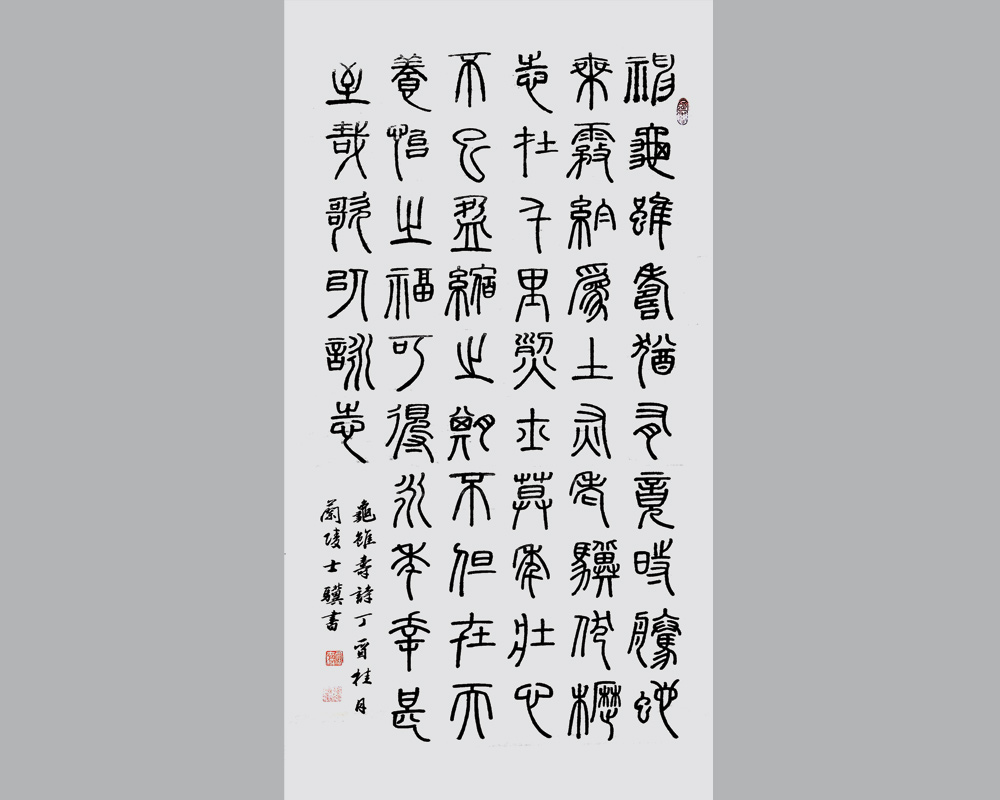 神龜雖壽猶有竟時騰蛇
乘霧終爲土灰老驥伏櫪
志在千里烈士暮年壯心
不已盈縮之期不但在天
養怡之福可得永年幸甚
至哉歌以詠志
龜雖壽詩丁酉桂月
蘭陵士驥書